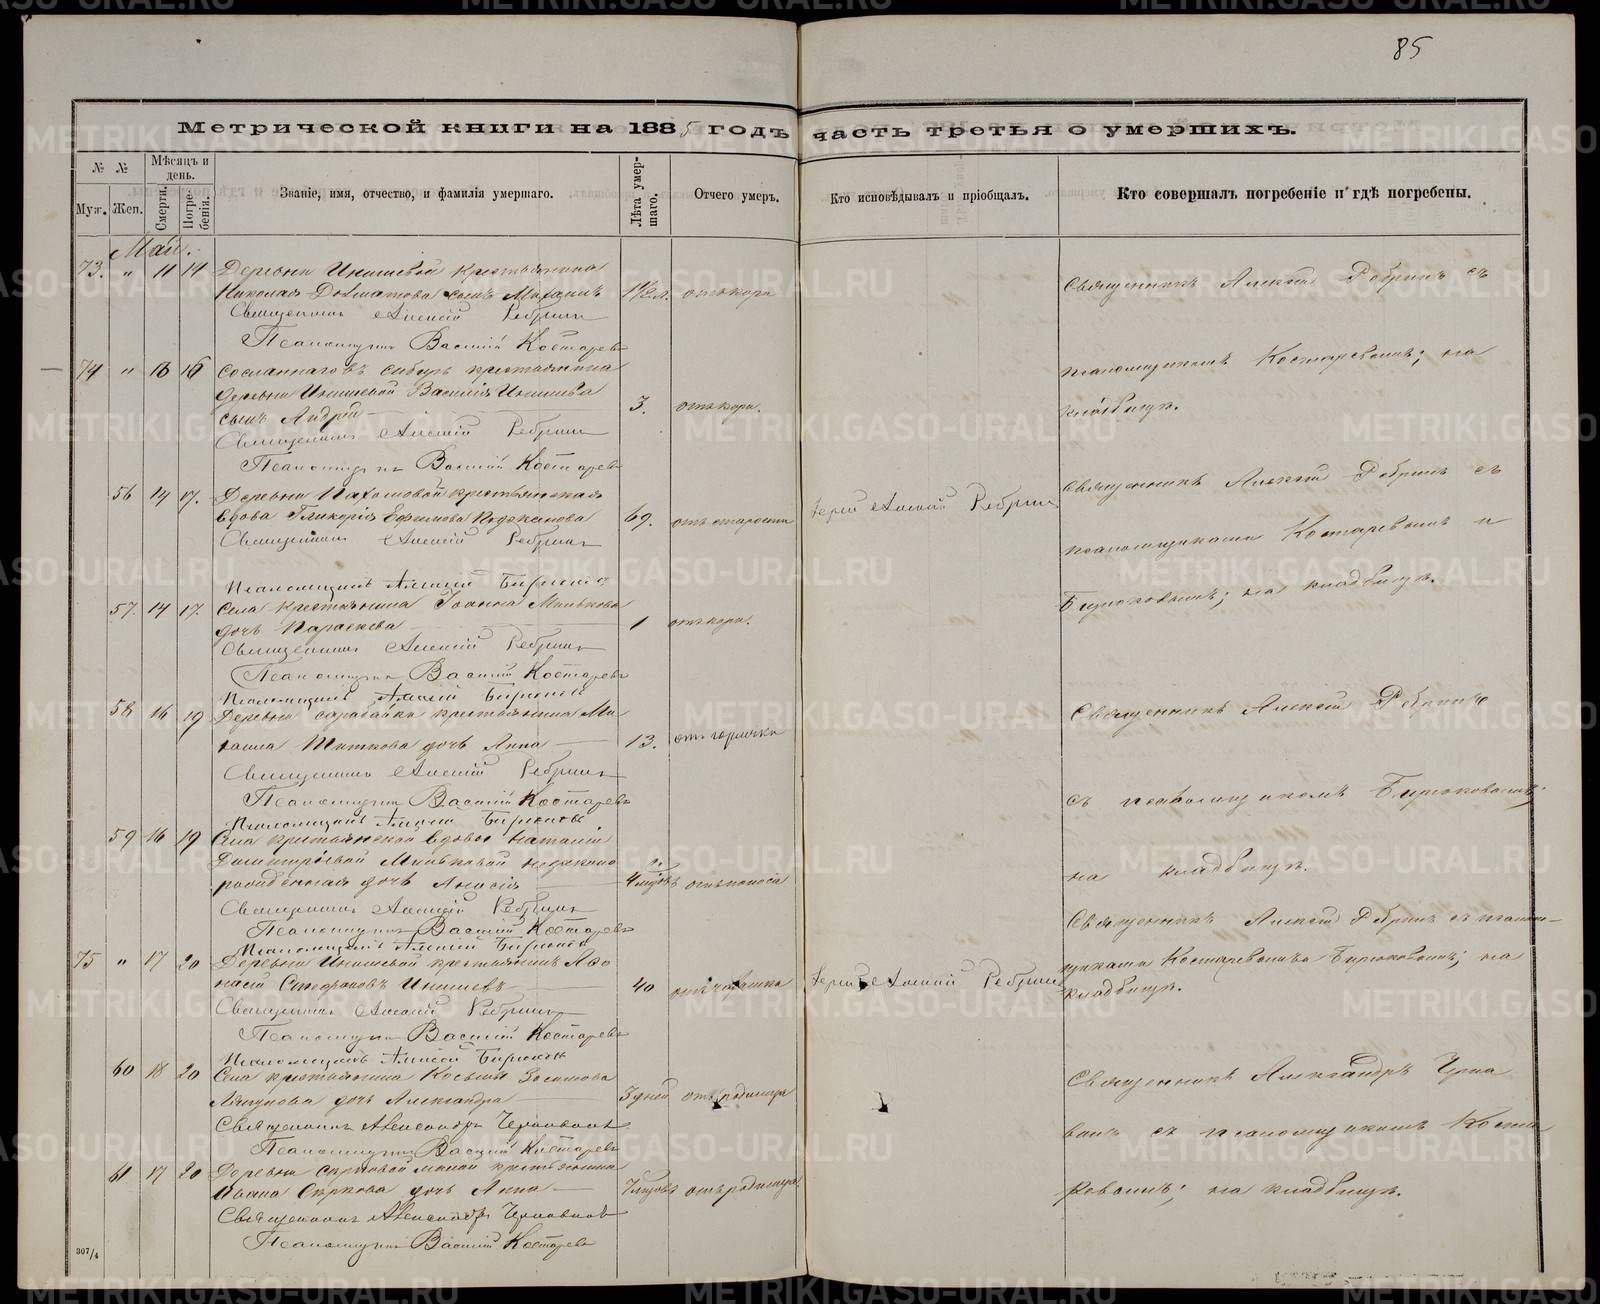 85
Метрической книги на 1885 годъ часть третья о умершихъ.
№ №
Муж. Жен.
Мѣсяцъ и день.
Смерти. Погребенія.
Званіе, имя, отчество, и фамилія умершаго.
Лѣта умершаго.
Отчего умеръ.
Кто исповѣдывалъ и пріобщалъ.
Кто совершалъ погребеніе и гдѣ погребены.
Май.
73. " 11 14 Деревни Инишевой крестьянина
Николая Довматова сынъ Михаилъ 1½ л. отъ кори
Священникъ Алексій Ребринъ
Псаломщикъ Василій Костаревъ
Священникъ Алексій Ребринъ съ
псаломщикомъ Костаревымъ; на
кладбищѣ.
74 " 13 16 Сосланнаго въ сибирь крестьянина
деревни Инишевой Василія Инишева
сынъ Андрей 3. отъ кори.
Священникъ Алексій Ребринъ
Псаломщикъ Василій Костаревъ
56 14 17. Деревни Пахомовой крестьянская
вдова Гликерія Ефимова 69. отъ старости
Іерей Алексій Ребринъ
Священникъ Алексій Ребринъ
Псаломщикъ Алексій Бирюковъ
Священникъ Алексій Ребринъ съ
псаломщиками Костаревымъ и
Бирюковымъ; на кладбищѣ.
57. 14 17. Села крестьянина Іоанна Минькова
дочь Параскева 1 отъ кори.
Священникъ Алексій Ребринъ
Псаломщикъ Василій Костаревъ
Псаломщикъ Алексій Бирюковъ
58 16 19 Деревни Сарабайки крестьянина Ми
хаила Титкова дочь Анна 13. отъ горячки
Священникъ Алексій Ребринъ
Псаломщикъ Василій Костаревъ
Псаломщикъ Алексій Бирюковъ
Священникъ Алексій Ребринъ
съ псаломщикомъ Бирюковымъ;
на кладбищѣ.
59 16 19 Села крестьянской вдовы Наталіи
Димитріевой Миньковой незаконно
рожденная дочь Анисія отъ поноса
Священникъ Алексій Ребринъ
Псаломщикъ Василій Костаревъ
Псаломщикъ Алексій Бирюковъ
Священникъ Алексій Ребринъ съ псалом-
щиками Костаревымъ и Бирюковымъ; на
кладбищѣ.
75 " 17 20 Деревни Инишевой крестьянинъ Афо
насій Стефановъ Инишевъ 40
Іерей Алексій Ребринъ
Священникъ Алексій Ребринъ
Псаломщикъ Василій Костаревъ
Псаломщикъ Алексій Бирюковъ
60 18 20 Села крестьянина Косьмы Зосимова
Ляпунова дочь Александра 3 дней отъ родимца
Священникъ Александръ Чернавинъ
Псаломщикъ Василій Костаревъ
Священникъ Александръ Черна
винъ съ псаломщикомъ Коста
ревымъ; на кладбищѣ.
61 17 20 Деревни Сарковой малой крестьянина
Ивана Саркова дочь Анна отъ родимца.
Священникъ Александръ Чернавинъ
Псаломщикъ Василій Костаревъ
307/4
METRIKI.GASO-URAL.RU